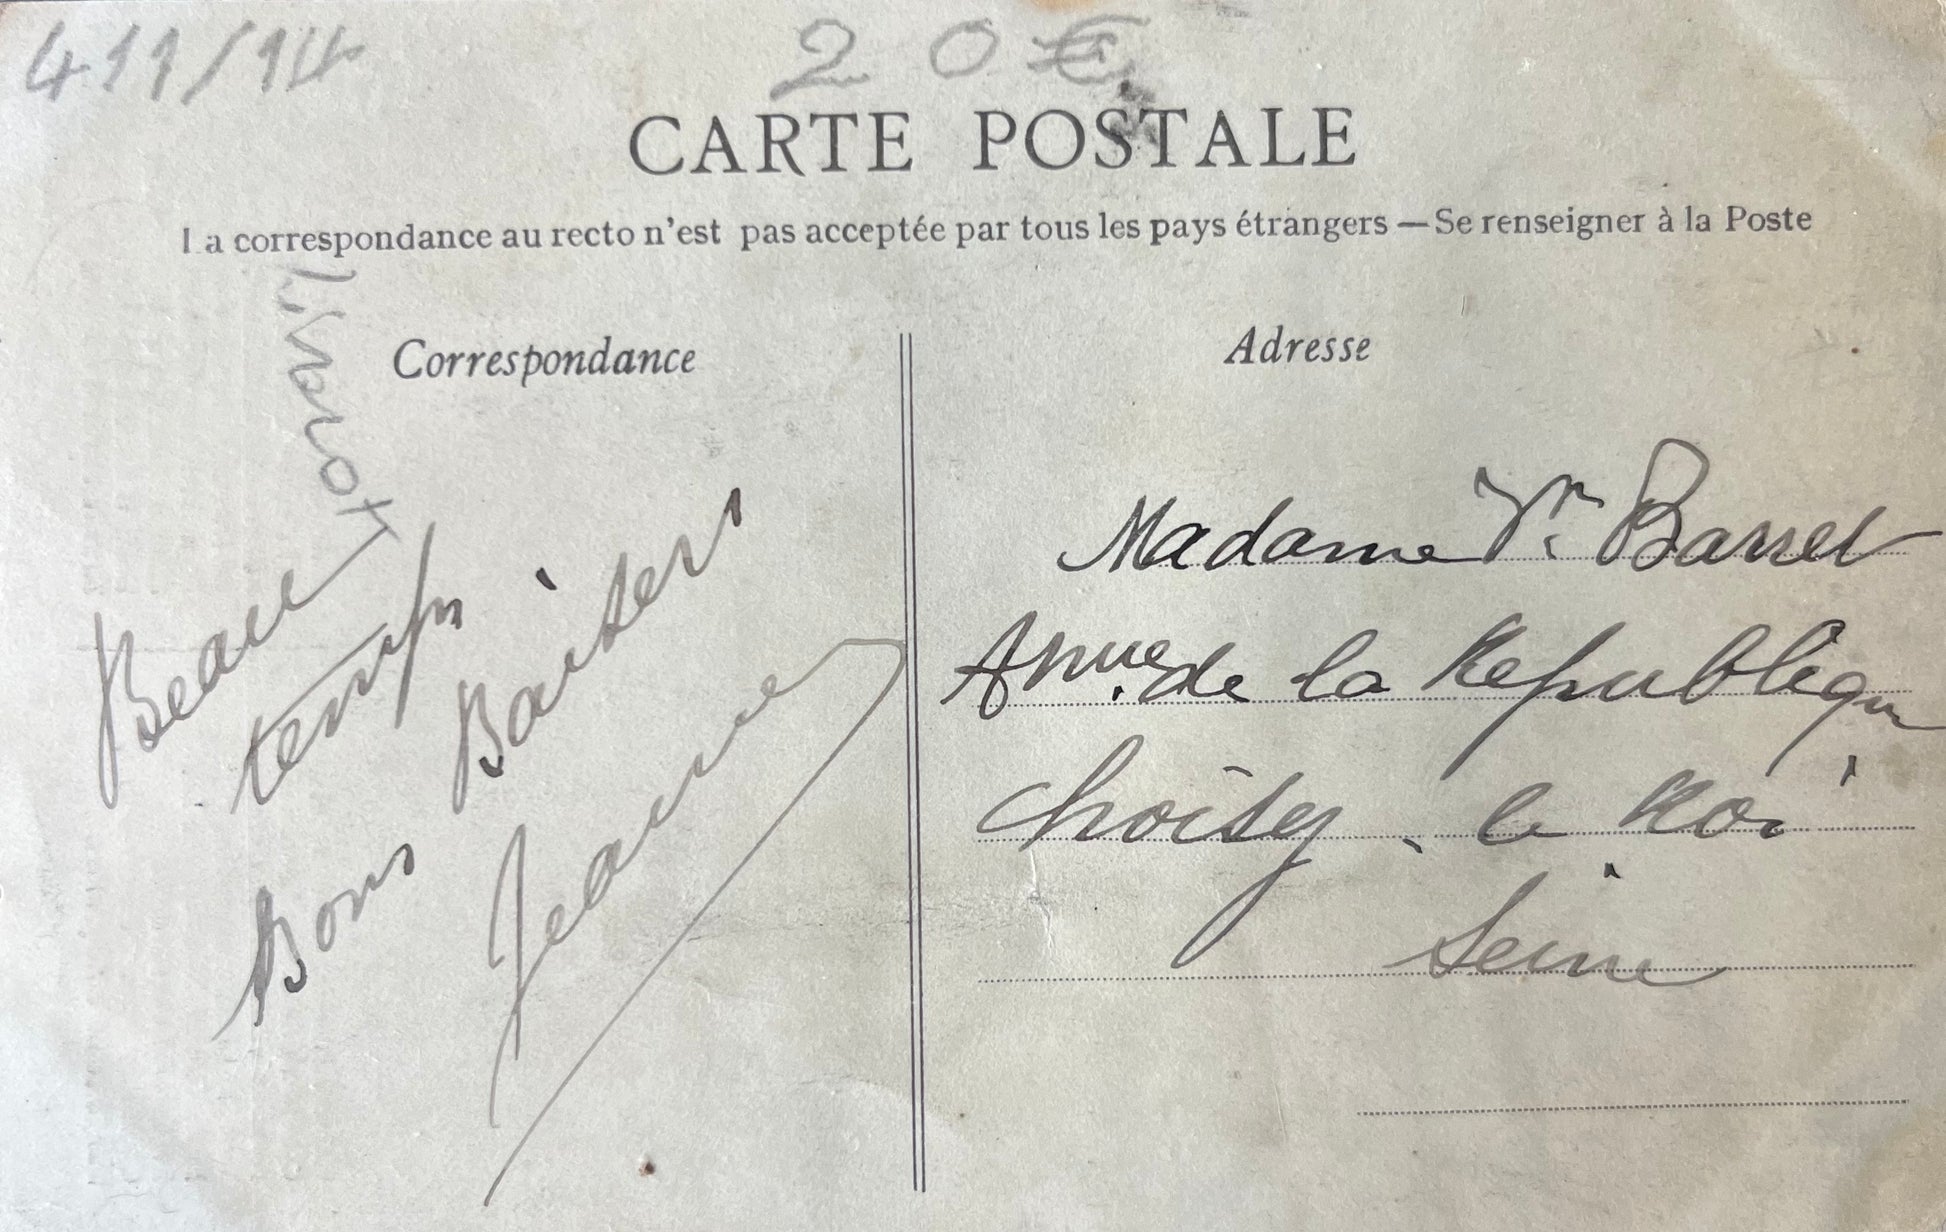 411/14
20€
CARTE POSTALE
La correspondance au recto n'est pas acceptée par tous les pays étrangers — Se renseigner à la Poste
Correspondance
Beau
temps
Bons Baisers
Jeanne
Adresse
Madame Vr. Barret
Anue. de la République
Choisy-le-Roi
Seine